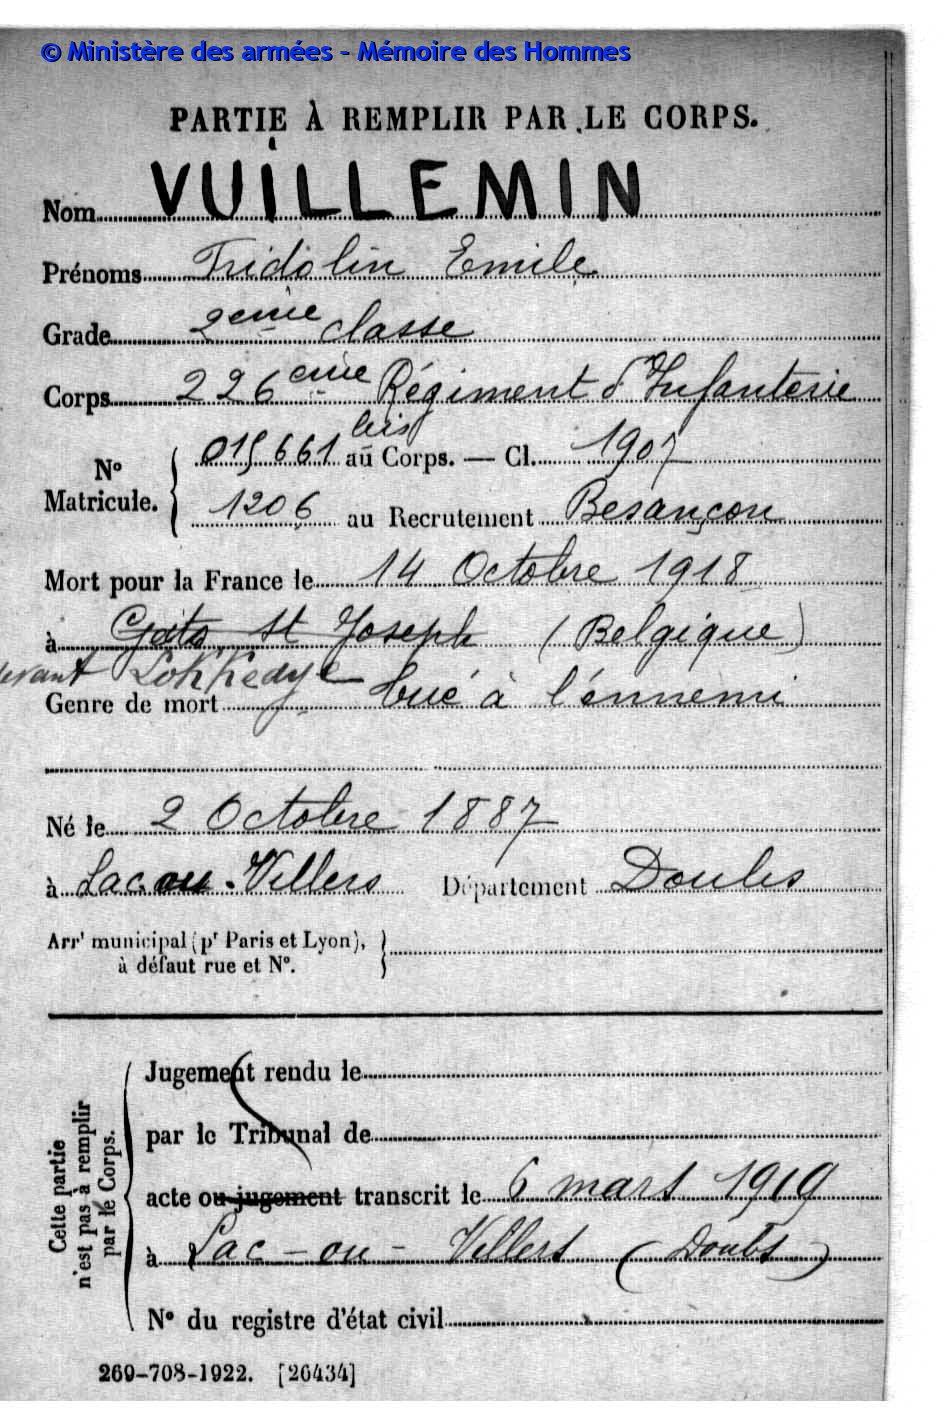 © Ministère des armées - Mémoire des Hommes
PARTIE À REMPLIR PAR LE CORPS.
Nom VUILLEMIN
Prénoms Fridolin Emile
Grade 2eme classe
Corps 226eme Régiment d'Infanterie
bis
015661 au Corps. — Cl. 1907
N°
Matricule.
1206 au Recrutement Besançon
Mort pour la France le 14 Octobre 1918
à Gits St Joseph (Belgique)
devant Lokkedye
Genre de mort tué à l'énnemi
Né le 2 Octobre 1887
à Lac ou Villers Département Doubs
Arrt municipal (pr Paris et Lyon),
à défaut rue et N°.
Cette partie
n'est pas à remplir
par le Corps.
Jugement rendu le
par le Tribunal de
acte ou jugement transcrit le 6 mars 1919
à Lac-ou-Villers (Doubs)
N° du registre d'état civil
269-708-1922. [26434]